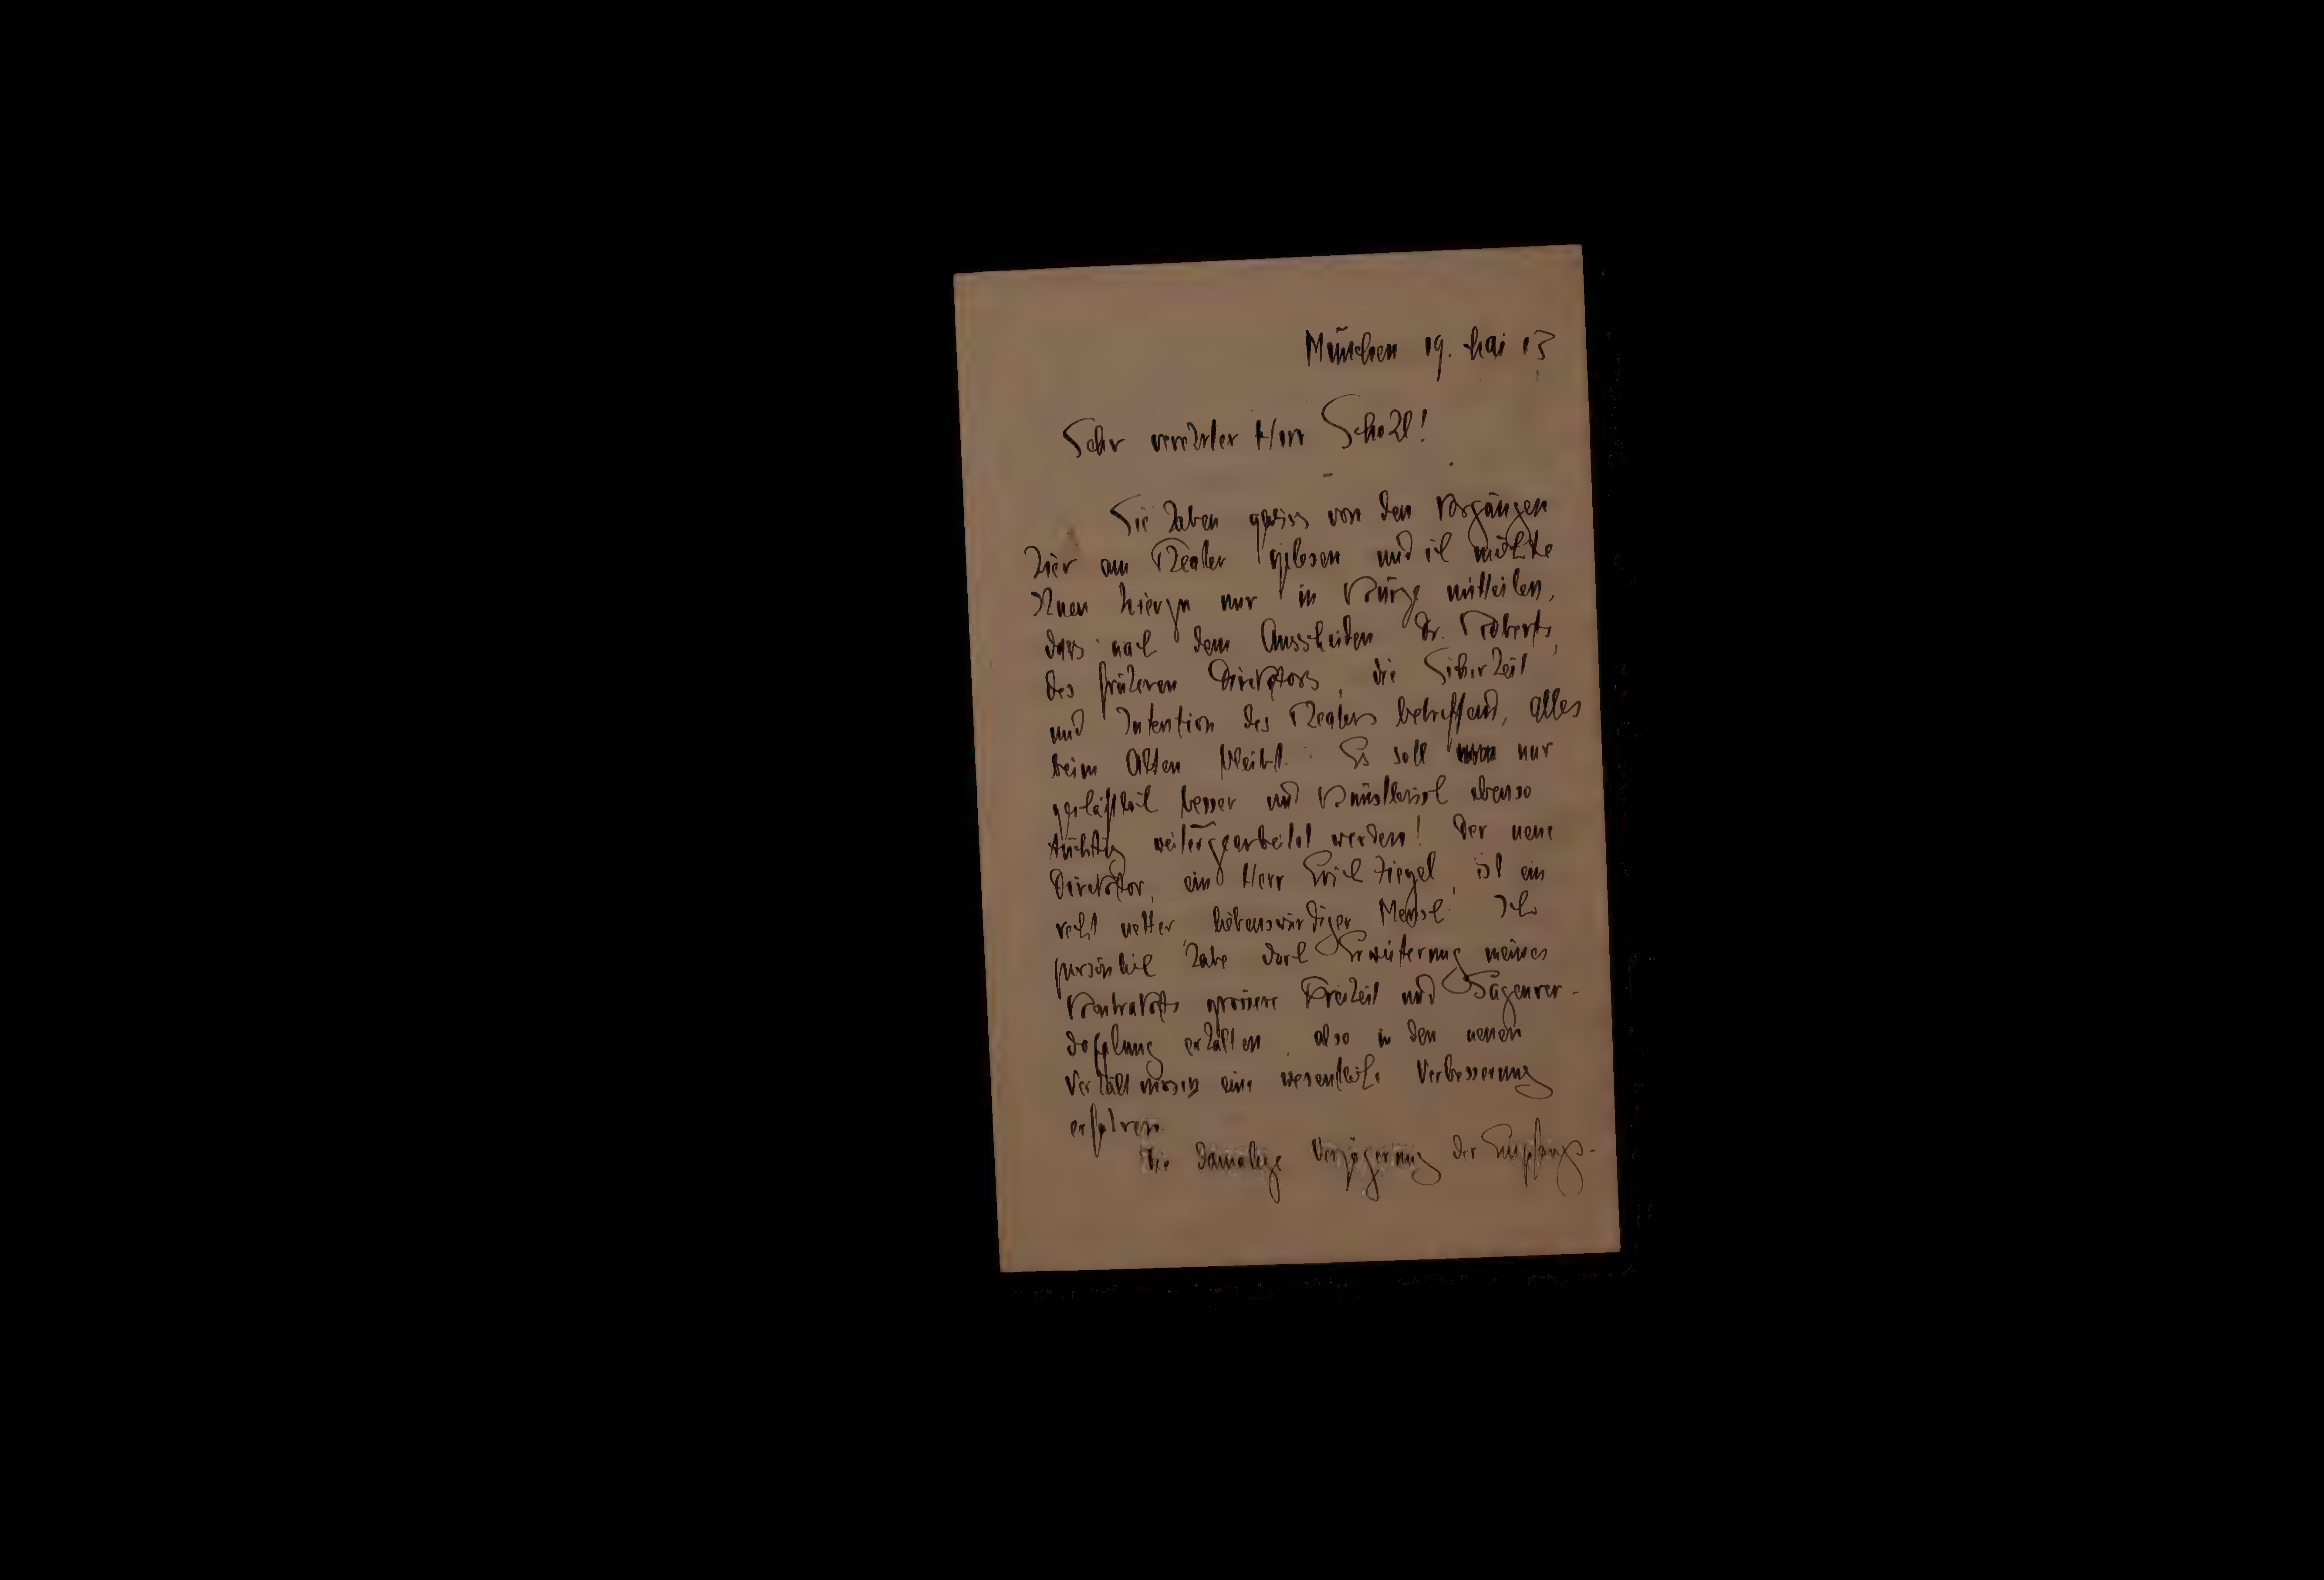 München 19. Mai 13
Sehr verehrter Herr Scholl!
Sie haben gewiss von den Vorgängen
hier am Theater gelesen und ich möchte
Ihnen hierzu nur in Kürze mitteilen,
dass nach dem Ausscheiden Dr. Roberts,
des früheren Direktors, die Sicherheit
und Intention des Theaters betreffend, alles
beim Alten bleibt. Es soll nur
geschäftlich besser und künstlerisch ebenso
tüchtig weitergearbeitet werden! Der neue
Direktor, ein Herr Erich Ziegel, ist ein
recht netter, liebenswürdiger Mensch! Ich
persönlich habe durch Erweiterung meines
Kontrakts grössere Freiheit und Gagenver-
dopplung erhalten, also in den neuen
Verhältnissen eine wesentliche Verbesserung
erfahren.
Die damalige Verzögerung der Empfangs-